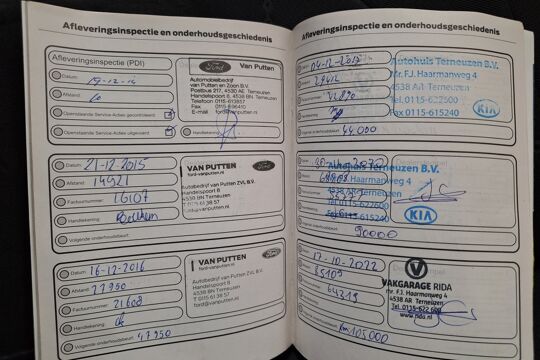 Afleveringsinspectie en onderhoudsgeschiedenis
Afleveringsinspectie (PDI)
Datum:
Afstand:
Openstaande Service-Acties gecontroleerd:
Openstaande Service-Acties uitgevoerd:
Ford
Van Putten
Automobielbedrijf
van Putten en Zoon B.V.
Postbus 217, 4530 AE Terneuzen
Handelspoort 8, 4538 BN Terneuzen
Telefoon 0115-613857
Fax
E-mail ford@vanputten.nl
Handtekening:
Datum: 21-12-2015
Afstand: 14921
Factuurnummer: 16107
Handtekening:
Volgende onderhoudsbeurt:
VAN PUTTEN
ford-vanputten.nl
Ford
Autobedrijf Van Putten ZVL B.V.
Handelspoort 8
4538 BN Terneuzen
T 0115 61 38 57
vanputten.nl
Datum: 16-12-2016
Afstand: 27950
Factuurnummer: 21608
Handtekening:
Volgende onderhoudsbeurt: 47950
VAN PUTTEN
ford-vanputten.nl
Ford
Autobedrijf Van Putten ZVL B.V.
Handelspoort 8
4538 BN Terneuzen
T 0115 61 38 57
vanputten.nl
Afleveringsinspectie en onderhoudsgeschiedenis
04-12-2017
Volgende onderhoudsbeurt: 44.000
Autohuis Terneuzen B.V.
Mr. F.J. Haarmanweg 4
4538 AR Terneuzen
Tel. 0115-622500
Fax 0115-615240
KIA
Autohuis Terneuzen B.V.
Mr. F.J. Haarmanweg 4
4538 AR Terneuzen
Tel. 0115-622500
Fax 0115-615240
KIA
Volgende onderhoudsbeurt: 90000
17-10-2022
85109
64319
VAKGARAGE RIDA
mr. F.J. Haarmanweg 4
4538 AR Terneuzen
www.rida.nl
km 105000